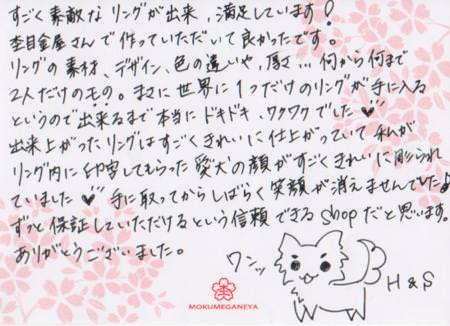 すごく素敵なリングが出来、満足しています！
杢目金屋さんで作っていただいて良かったです。
リングの素材、デザイン、色の違いや、厚さ…何から何まで
2人だけのもの。まさに世界に1つだけのリングが手に入る
というので出来るまで本当にドキドキ、ワクワクでした♥
出来上がったリングはすごくきれいに仕上がっていて私が
リング内に印字してもらった愛犬の顔がすごくきれいに彫られ
ていました♥手に取ってからしばらく笑顔が消えませんでした♪
ずっと保証していただけるという信頼できるshopだと思います。
ありがとうございました。
ワンッ
H&S
MOKUMEGANEYA